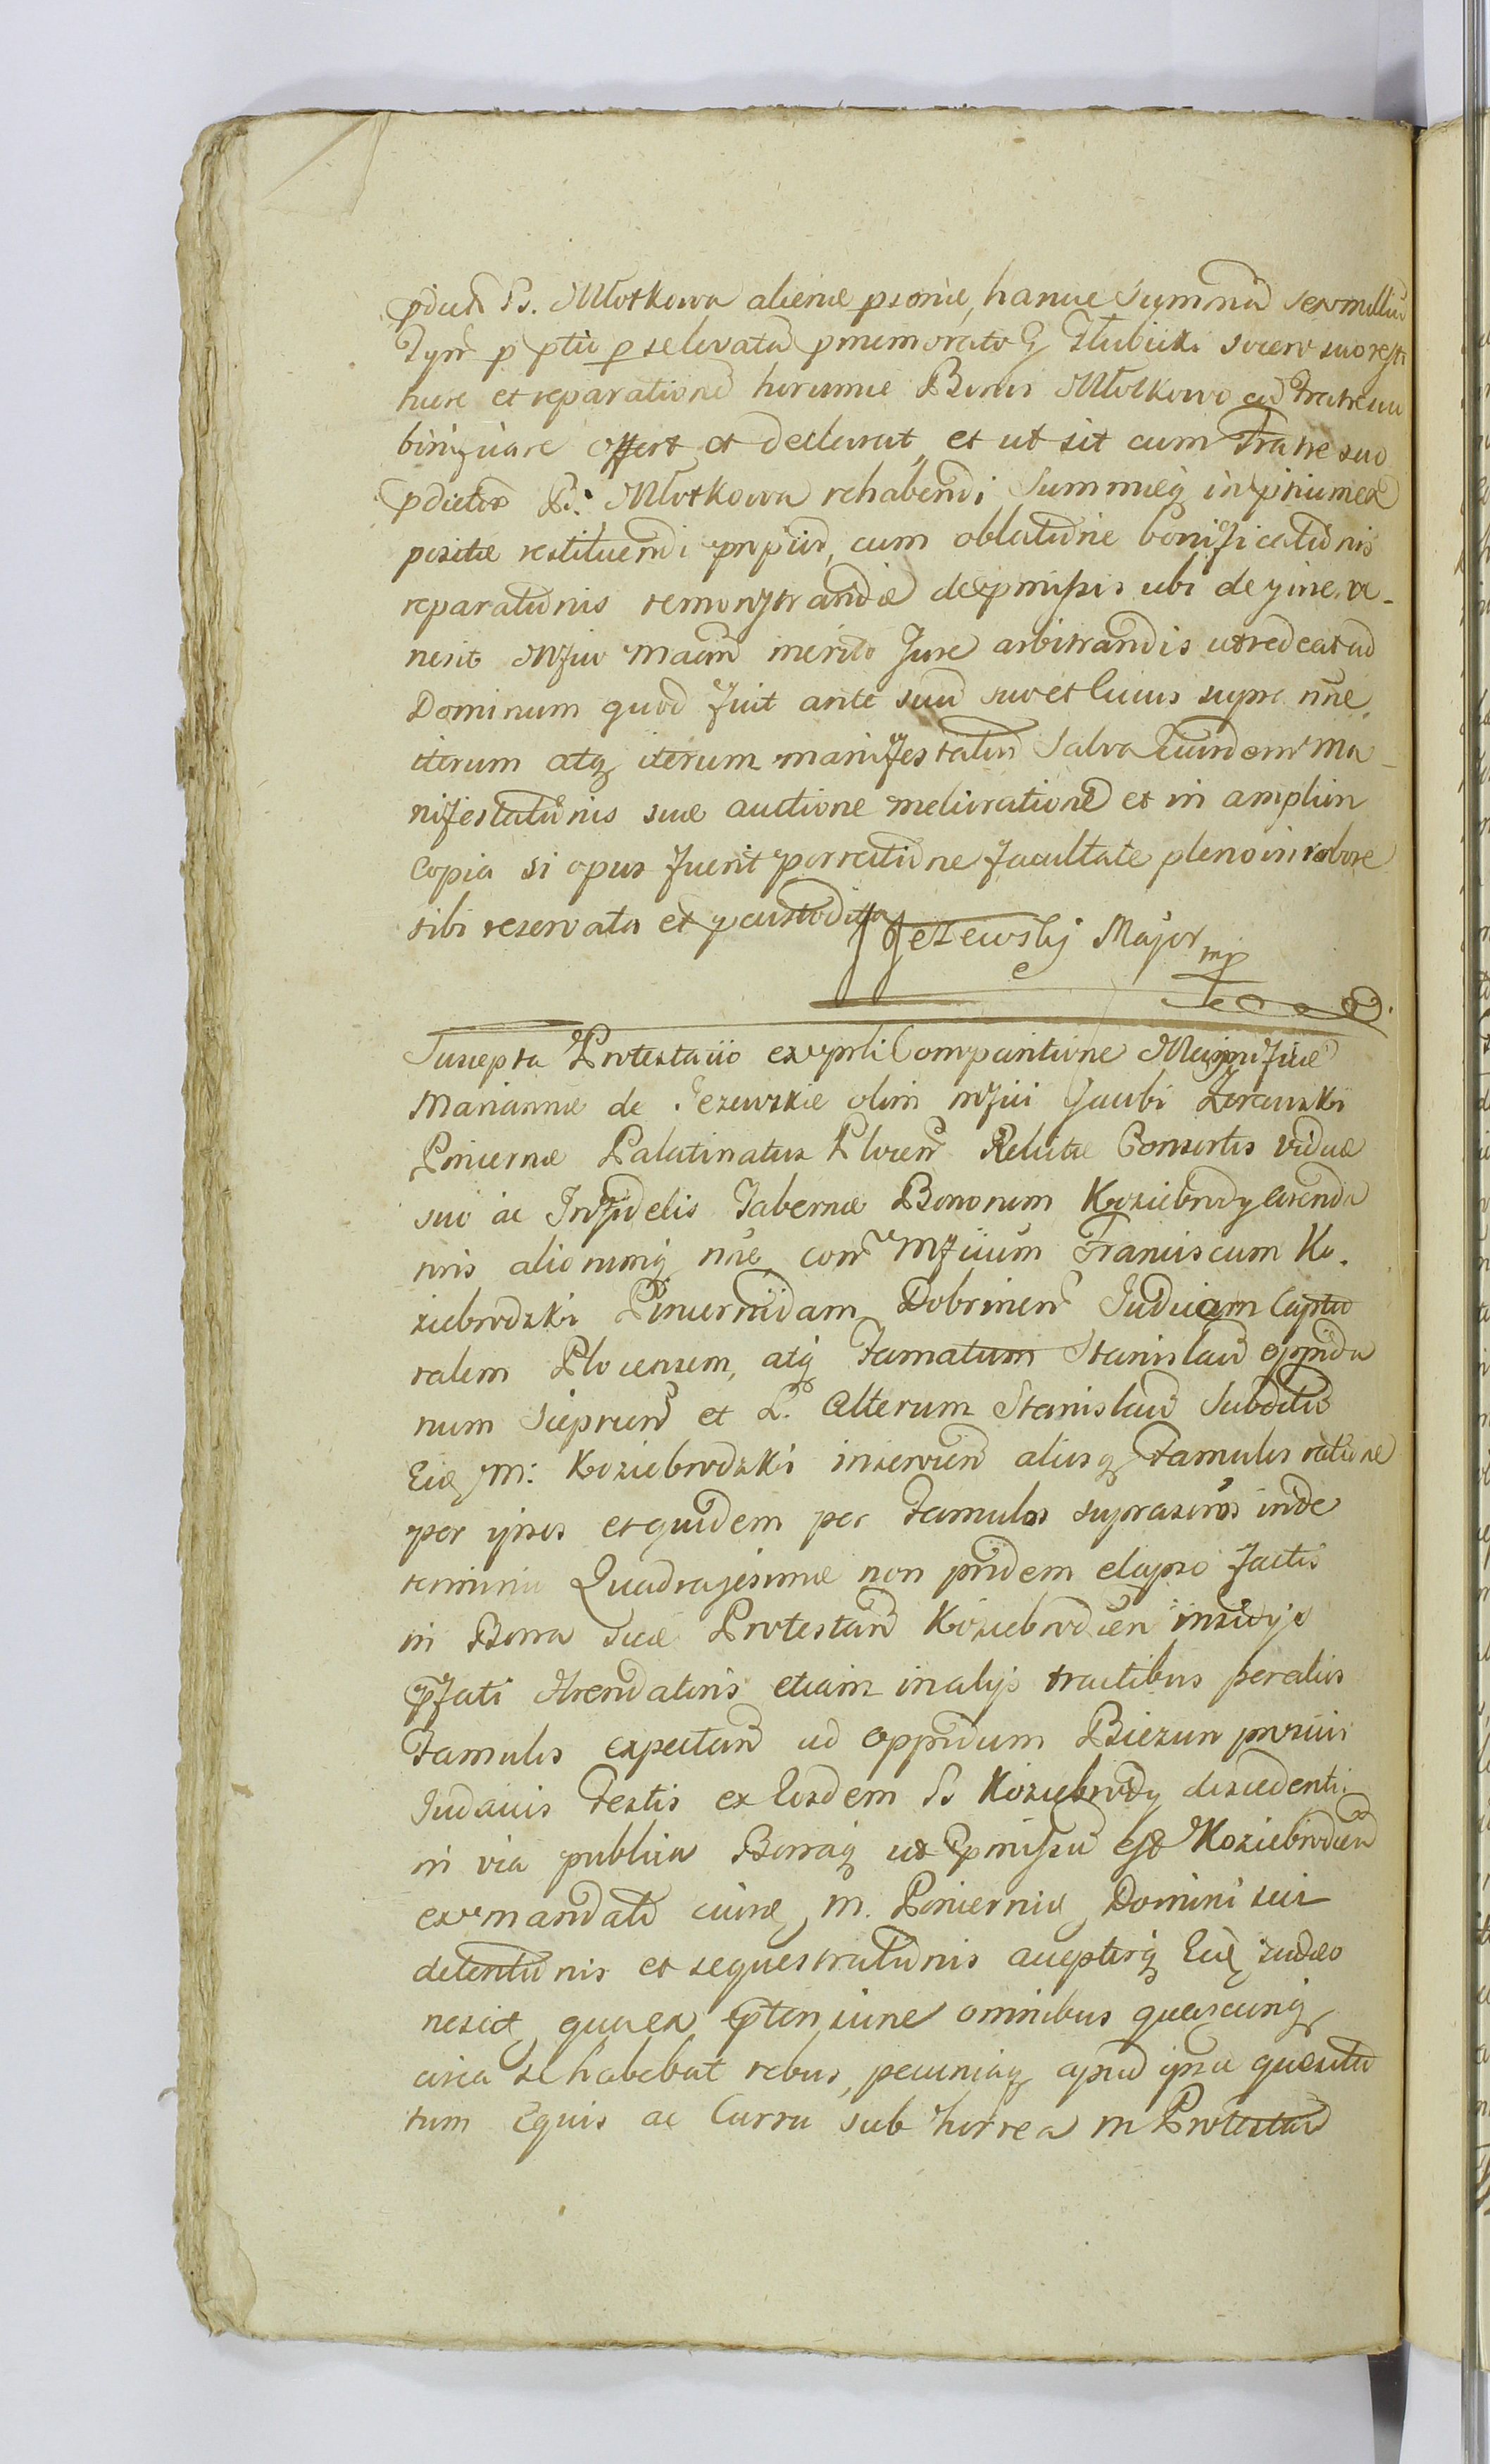 pdictã B. Młotkowa alienæ psonæ, hancce Summã sex milliũ
Tynf p ptiũ p selevatã pmemorato G Hlubicki socero suo resti
tuere et reparationẽ horumce Bonor Młotkowo cũ Fratre suo
bonificare offert et declarat, et ut sit cum Fratre suo
pdictor B: Młotkowa rehabendi Summæq in priumea
positæ restituendi propriũ, cum oblatione bonificationis
reparationis remonstrandæ de pmissis ubi de jure ve-
nerit Mfico merito Jure arbitrandis ut redeat ad
Dominum quod fuit ante suũ suo et cuius supra nñe
iterum atq iterum manifestatur Salva Eiusdem Ma-
nifestationis suæ auctione melioratione et in ampliori
Copia si opus fuerit porrectione facultate pleno in robore
sibi reservata et pcustodita
JJezewskj Major mp
Suscepta Protestatio ex prsti Comparitione Magnificæ
Mariannæ de Jezewskie olim mfici Jacobi Zerawski
Pincernæ Palatinatus Plocen Relictæ Consortis viduæ
suo ac Infidelis Tabernæ Bonorum Koziebrody Arenda
toris aliorumq nñe, con Mficum Franciscum Ko-
ziebrodzki Pincernidam Dobrinen Judicem Captu
ralem Plocensem, atq Famatum Stanislaũ oppida
num Sieprcen et L. Alterum Stanislaũ Subditũ
Eiq M: Koziebrodzki inservien aliosq Famulos ratione
per ipsos et quidem per Famulos suprascros inde
termino Quadragesimæ non pridem elapso factis
in Borra suæ Protestan Koziebrodien insidijs
pfati Arendatoris etiam in alijs tractibus per alios
Famulos expectan ad oppidum Biezun pro suis
Judaicis Festis ex Eosdem B Koziebrody discedenti
in via publica Borraq ut pmissũ est Koziebrodien
ex mandato cuius M. Pincernid Domini sui
detentionis et sequestrationis acceptisq Eiq Judæo
nescit qua ex ptensione omnibus quæcunq
circa se habebat rebus, pecuniaq apud ipsũ quæsita
tum Equis ac Curru sub horrea M Protestan